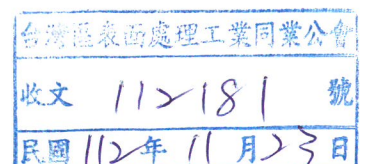 台灣區表面處理工業同業公會
收文 112181 號
民國 112 年 11 月 23 日